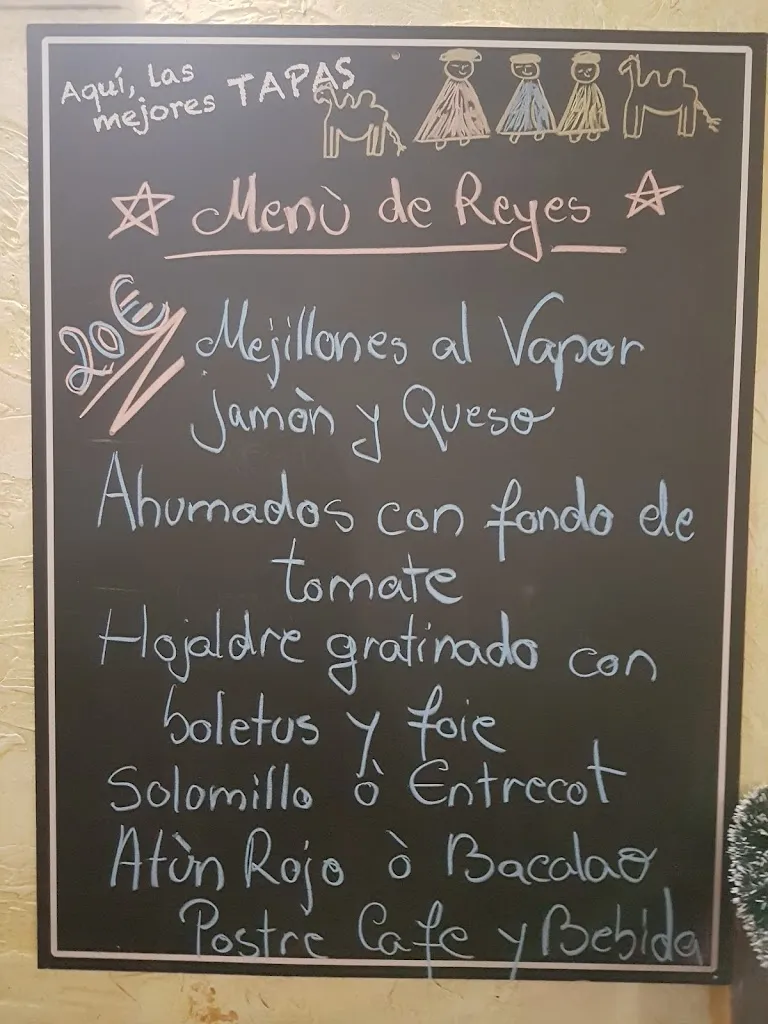 Aquí, las
mejores TAPAS
Menù de Reyes
20€
Mejillones al Vapor
jamòn y Queso
Ahumados con fondo de
tomate
Hojaldre gratinado con
boletus y foie
Solomillo ò Entrecot
Atùn Rojo ò Bacalao
Postre Cafe y Bebida